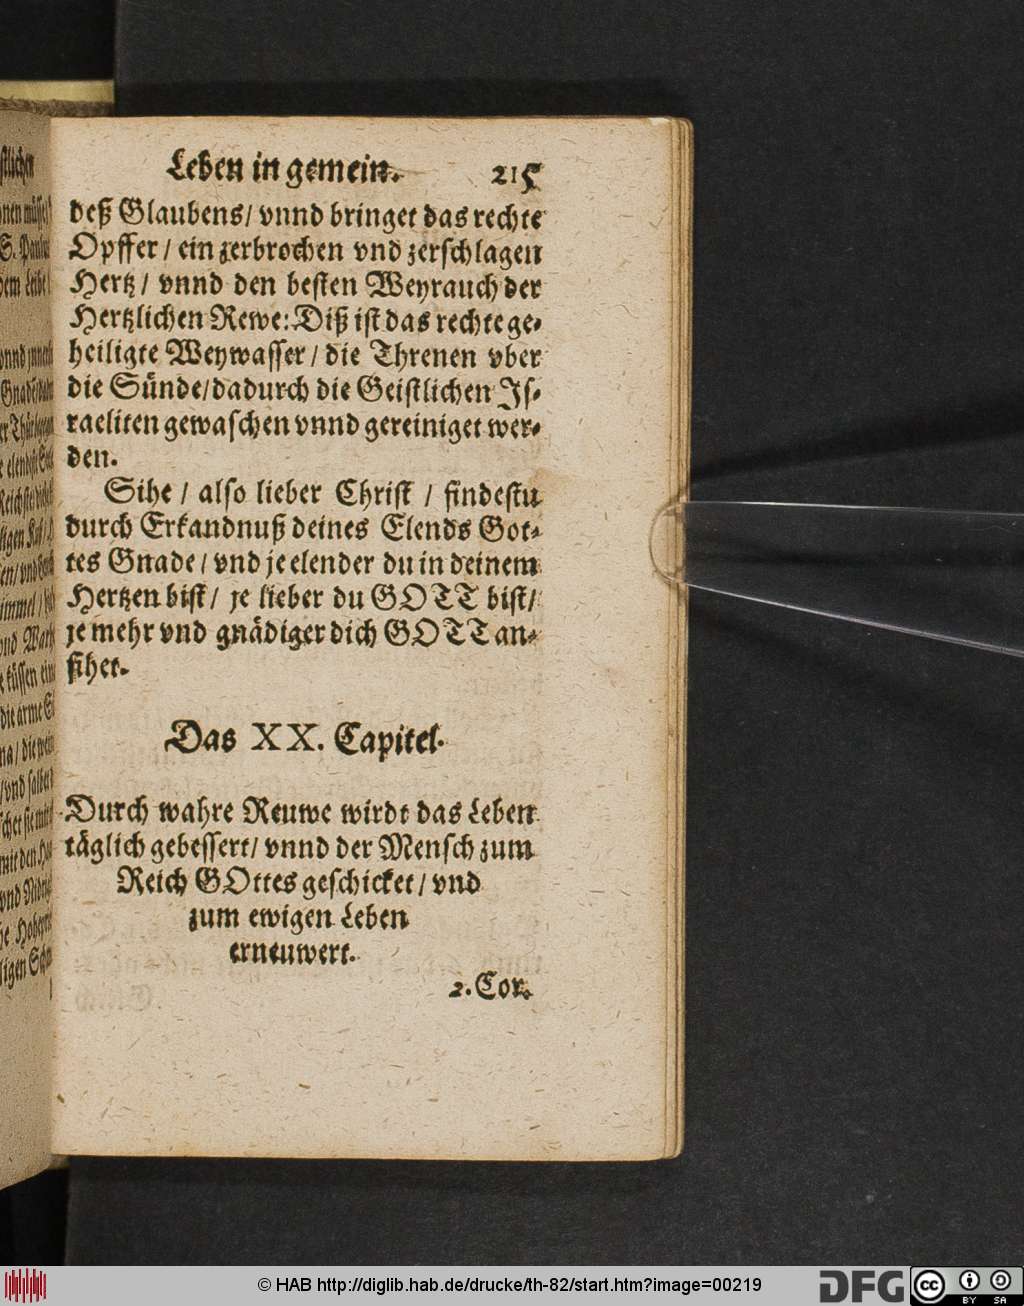 Leben in gemein. 215
deß Glaubens/ vnnd bringet das rechte
Opffer/ ein zerbrochen vnd zerschlagen
Hertz/ vnnd den besten Weyrauch der
Hertzlichen Rewe: Diß ist das rechte ge-
heiligte Weywasser/ die Threnen vber
die Sünde/ dadurch die Geistlichen Is-
raeliten gewaschen vnnd gereiniget wer-
den.
Sihe/ also lieber Christ/ findestu
durch Erkandnuß deines Elends Got-
tes Gnade/ vnd je elender du in deinem
Hertzen bist/ je lieber du GOTT bist/
je mehr vnd gnädiger dich GOTT an-
sihet.
Das XX. Capitel.
Durch wahre Reuwe wirdt das Leben
täglich gebessert/ vnnd der Mensch zum
Reich GOttes geschicket/ vnd
zum ewigen Leben
erneuwert.
2. Cor.
© HAB http://diglib.hab.de/drucke/th-82/start.htm?image=00219
DFG
cc BY SA